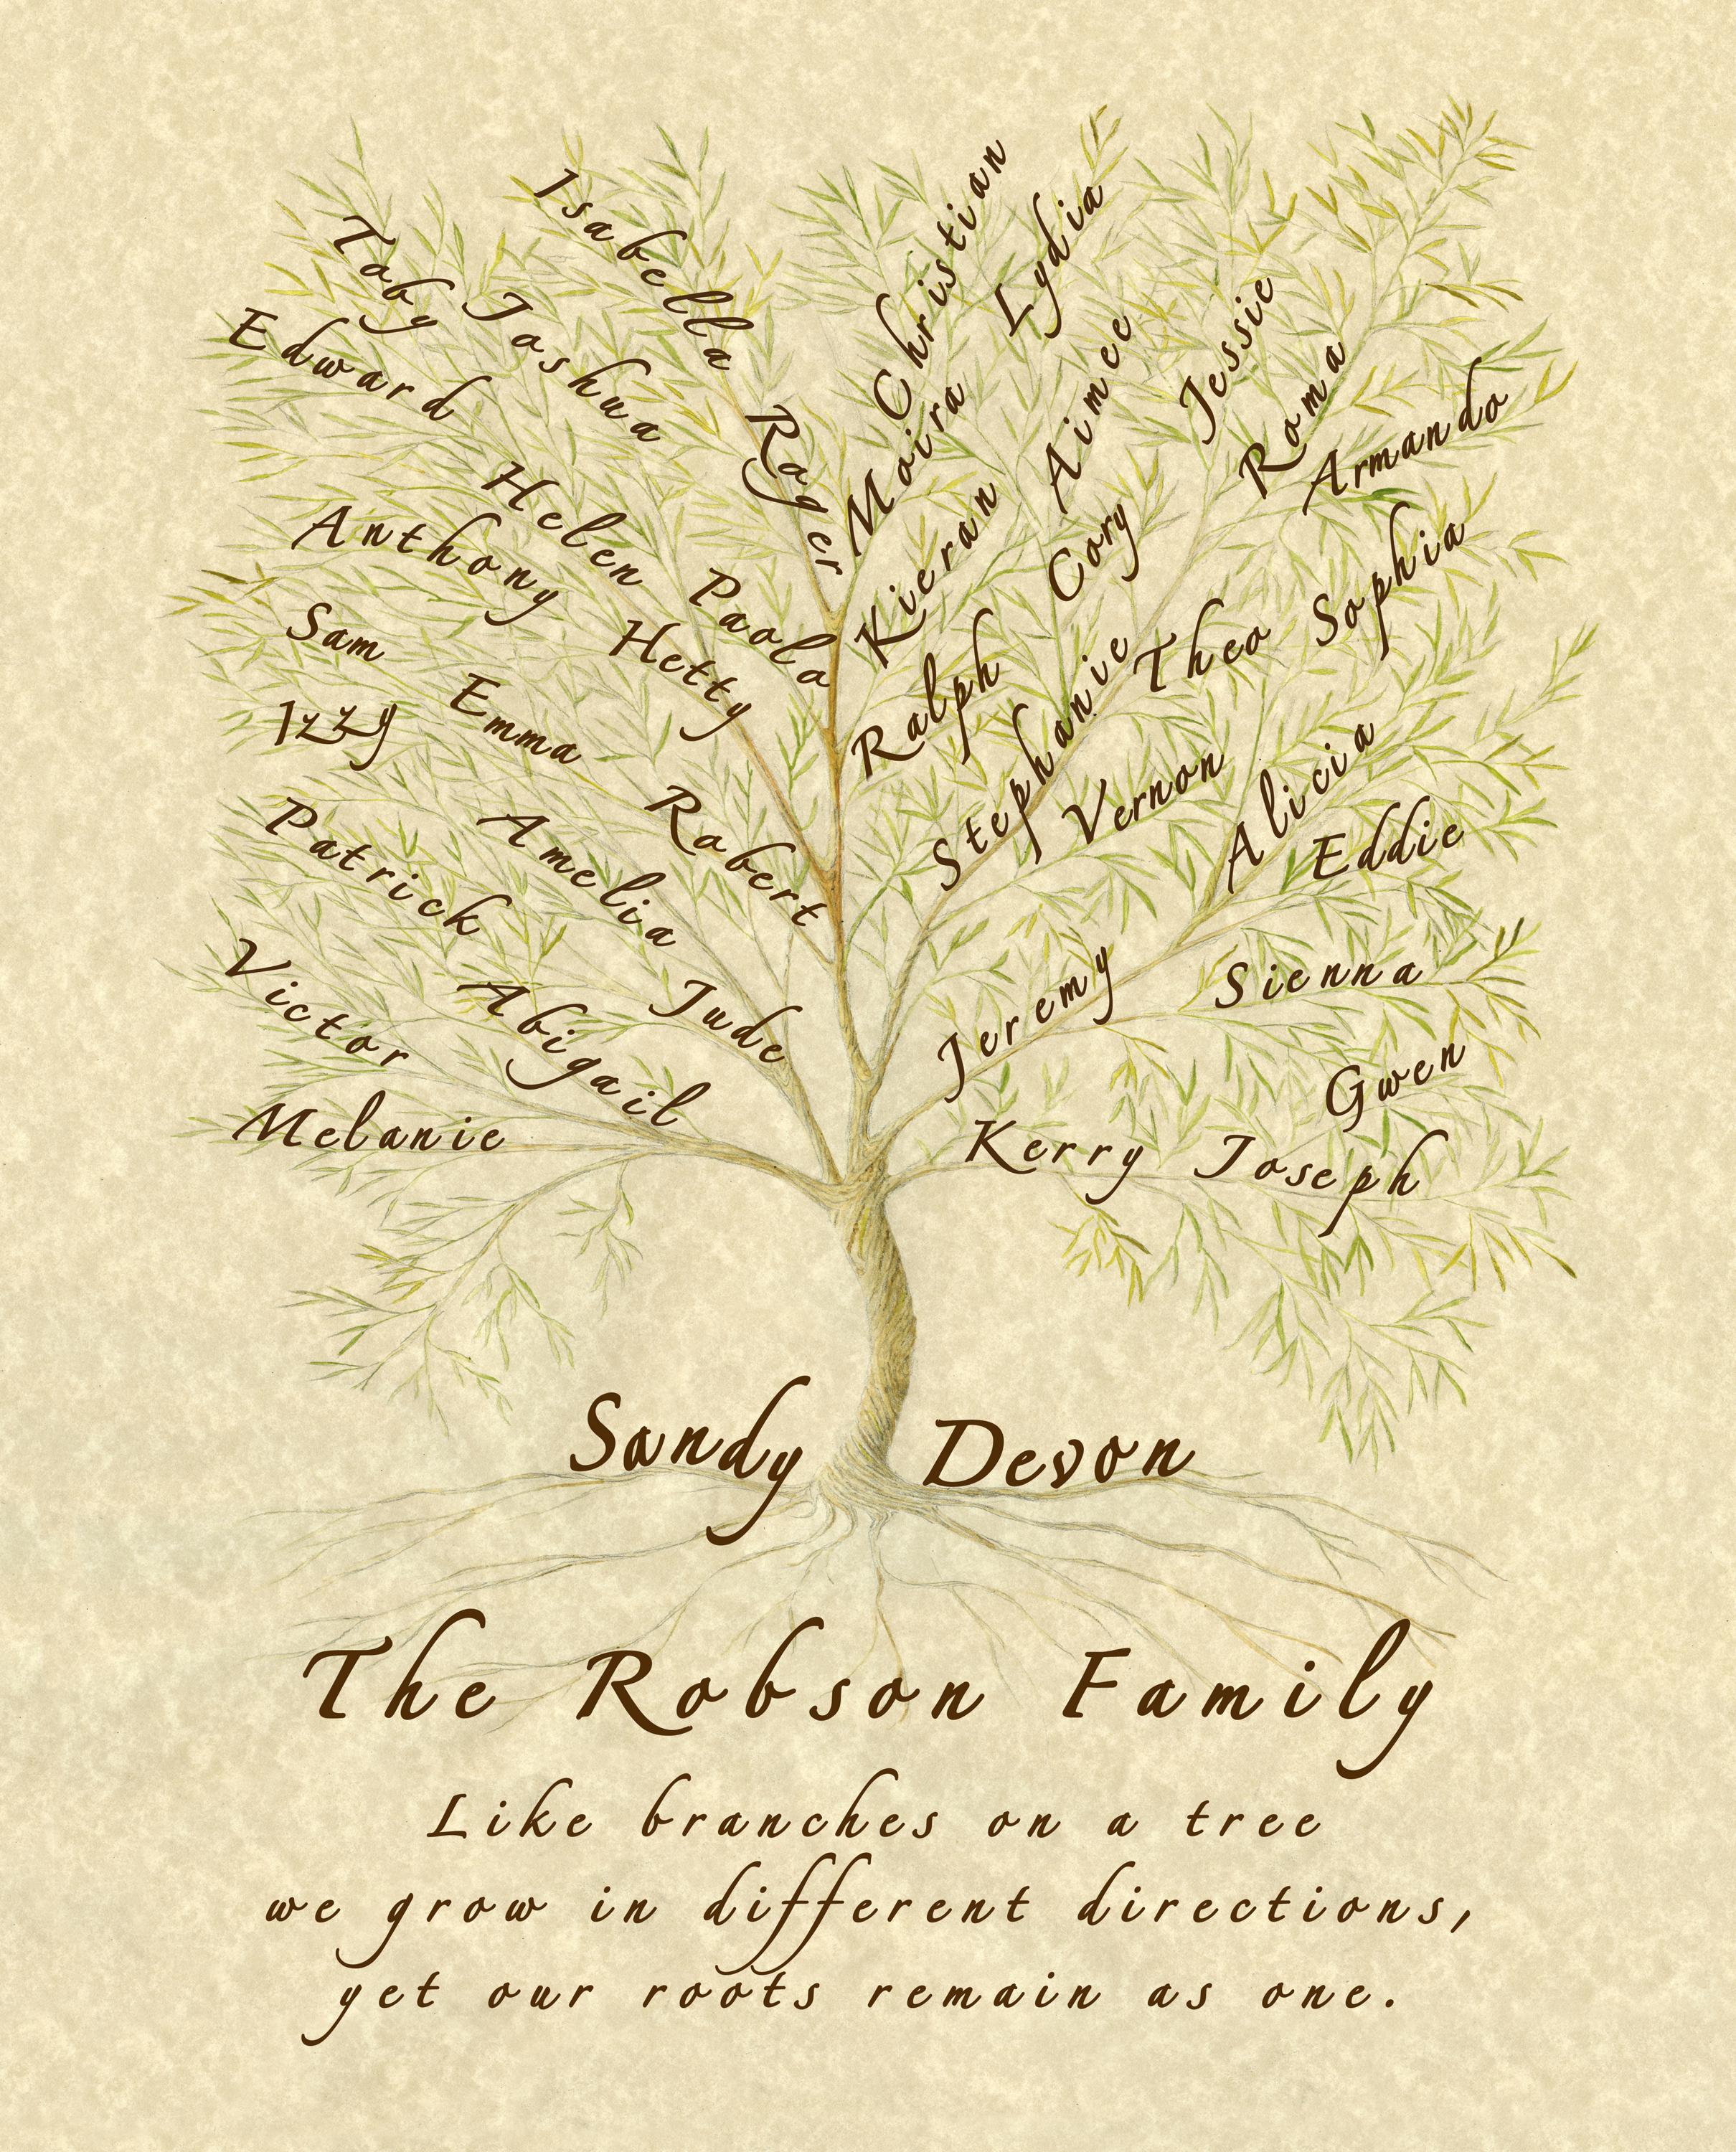 Isabella
Christian
Lydia
Toby
Joshua
Edward
Roger
Moira
Aimee
Jessie
Roma
Armando
Helen
Anthony
Paola
Kieran
Cory
Sophia
Sam
Hetty
Ralph
Stephanie
Theo
Izzy
Emma
Vernon
Alicia
Patrick
Amelia
Robert
Eddie
Victor
Abigail
Jude
Jeremy
Sienna
Gwen
Melanie
Kerry
Joseph
Sandy Devon
The Robson Family
Like branches on a tree
we grow in different directions,
yet our roots remain as one.